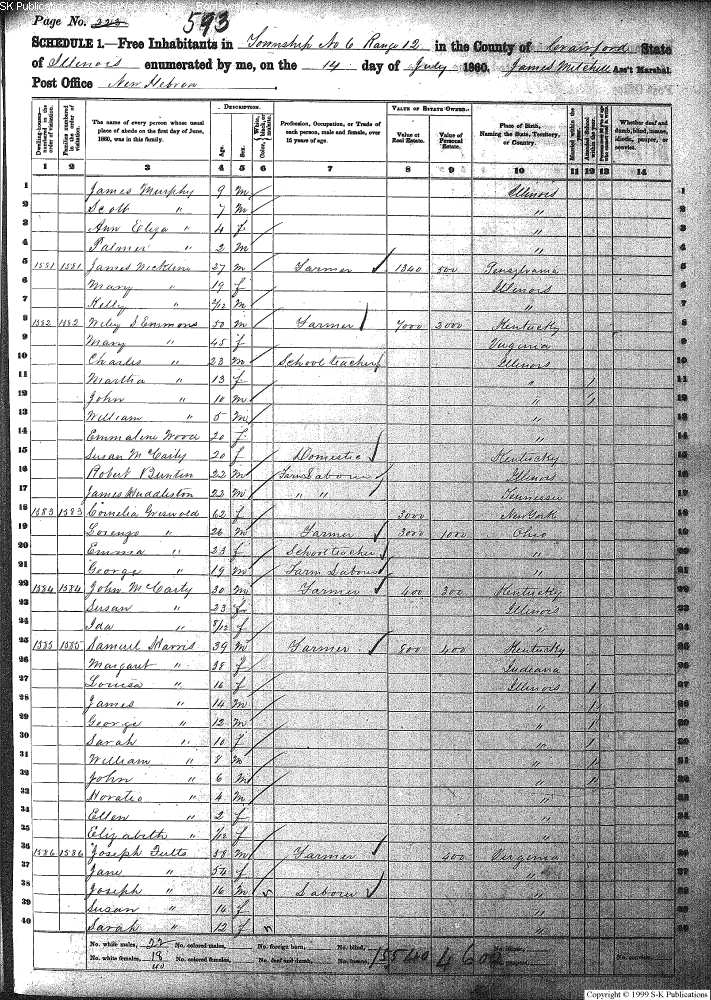 SK Publications, USGenWeb Archives, Rootsweb
Page No. 223
593
SCHEDULE 1.—Free Inhabitants in Township No 6 Range 12 in the County of Crawford State
of Illinois enumerated by me, on the 14 day of July 1860. James Mitchell Ass't Marshal.
Post Office New Hebron
Dwelling-houses—numbered in the order of visitation.
Families numbered in the order of visitation.
The name of every person whose usual place of abode on the first day of June, 1860, was in this family.
DESCRIPTION.
Age.
Sex.
Color, White, black, or mulatto.
Profession, Occupation, or Trade of each person, male and female, over 15 years of age.
VALUE OF ESTATE OWNED.
Value of Real Estate.
Value of Personal Estate.
Place of Birth, Naming the State, Territory, or Country.
Married within the year.
Attended School within the year.
Whether deaf and dumb, blind, insane, idiotic, pauper, or convict.
1 2 3 4 5 6 7 8 9 10 11 12 13 14
1 James Murphy 9 m / Illinois 1
2 Scott " 7 m / " 2
3 Ann Eliza " 4 f / " 3
4 Palmer " 2 m / " 4
5 1581 1581 James 27 m / Farmer ✓ 1340 500 Pensylvania 5
6 Mary " 19 f / Illinois 6
7 Kelly " 2/12 m / " 7
8 1582 1582 Wiley S Emmons 50 m / Farmer ✓ 7000 2000 Kentucky 8
9 Mary " 45 f / Virginia 9
10 Charles " 23 m / School teacher Illinois 10
11 Martha " 13 f / " / 11
12 John " 10 m / " / 12
13 William " 5 m / " 13
14 Emmaline Wood 20 f / " 14
15 Susan McCarty 20 f / Domestic ✓ Kentucky 15
16 Robert Buntin 22 m / Farm Laborer Illinois 16
17 James Huddleston 22 m / " " / Tennessee 17
18 1583 1583 Cornelia Griswold 62 f / 3000 New York 18
19 Lorenzo " 26 m / Farmer ✓ 3000 1000 Ohio 19
20 Emma " 23 f / School teacher ✓ " 20
21 George " 19 m / Farm Laborer ✓ " 21
22 1584 1584 John McCarty 30 m / Farmer ✓ 400 300 Kentucky 22
23 Susan " 23 f / Illinois 23
24 Ida " 8/12 f / " 24
25 1585 1585 Samuel Harris 39 m / Farmer ✓ 800 400 Kentucky 25
26 Margaret " 38 f / Indiana 26
27 Louisa " 16 f / Illinois 1 27
28 James " 14 m / " 1 28
29 George " 12 m / " 1 29
30 Sarah " 10 f / " 1 30
31 William " 8 m / " 1 31
32 John " 6 m / " 1 32
33 Horatio " 4 m / " 33
34 Ellen " 2 f / " 34
35 Elizabeth " 1/12 f / " 35
36 1586 1586 Joseph Fults 58 m / Farmer ✓ 400 Virginia 36
37 Jane " 54 f / " 37
38 Joseph " 16 m Laborer ✓ " 38
39 Susan " 14 f " 39
40 Sarah " 12 f " 40
No. white males, 22 No. colored males, No. foreign born, No. blind, 15540 4600 No. idiotic,
No. white females, 18 No. colored females, No. deaf and dumb, No. insane, No. paupers, No. convicts,
40
Copyright © 1999 S-K Publications